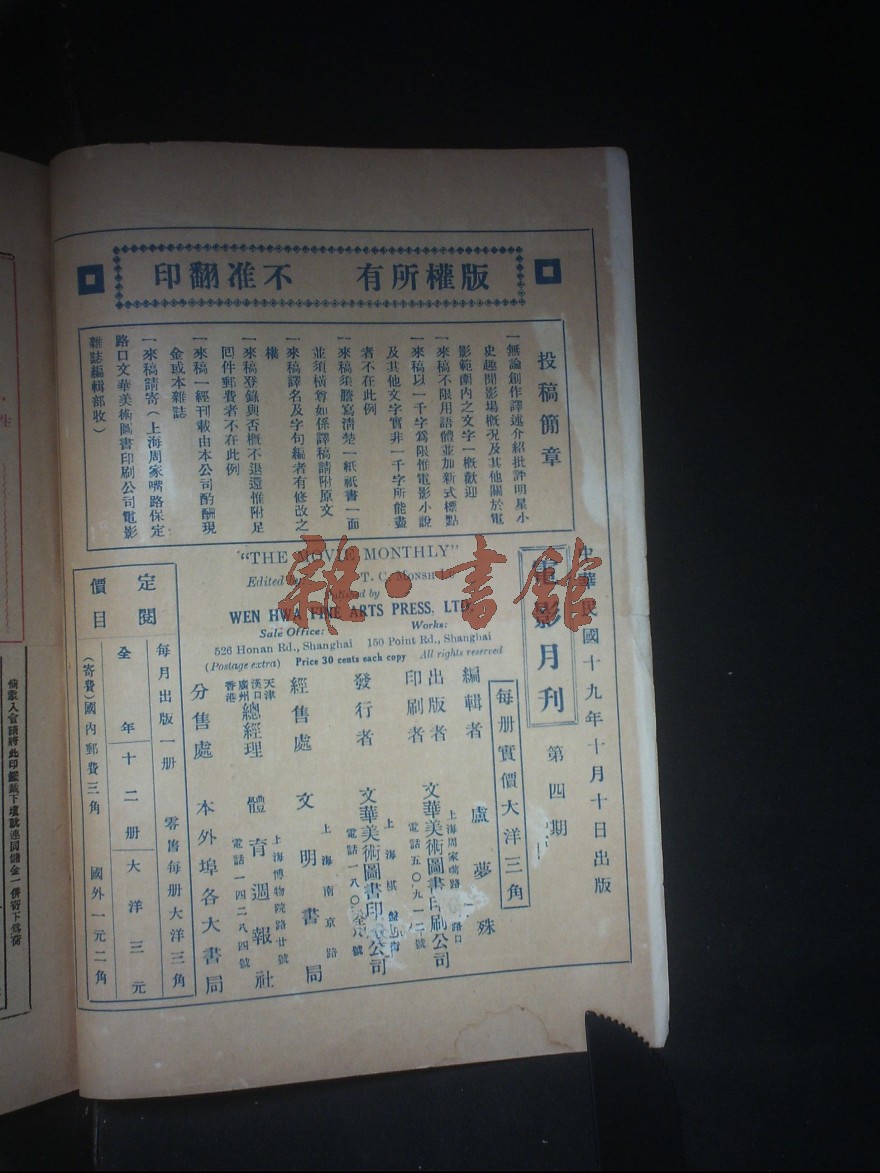 版權所有 不准翻印
投稿簡章
一無論創作譯述介紹批評明星小
史趣聞影場概況及其他關於電
影範圍內之文字一概歡迎
一來稿不限用語體並加新式標點
一來稿以一千字爲限惟電影小說
及其他文字實非一千字所能盡
者不在此例
一來稿須謄寫清楚一紙祇書一面
並須橫尊如係譯稿請附原文
一來稿譯名及字句編者有修改之
權
一來稿登錄與否概不退還惟附足
囘件郵費者不在此例
一來稿一經刊載由本公司酌酬現
金或本雜誌
一來稿請寄(上海周家嘴路保定
路口文華美術圖書印刷公司電影
雜誌編輯部收)
中華民國十九年十月十日出版
電影月刊 第四期
每册實價大洋三角
"THE MOVIE MONTHLY"
Edited by T. C. MONSH
Published by
WEN HWA FINE ARTS PRESS, LTD.
Sale Office: Works:
526 Honan Rd., Shanghai 150 Point Rd., Shanghai
(Postage extra) Price 30 cents each copy All rights reserved
編輯者 盧夢殊
出版者
印刷者 文華美術圖書印刷公司
上海周家嘴路 路口
電話五〇九一二號
發行者 文華美術圖書印 公司
上海棋盤
電話一八〇 號
經售處 文明書局
上海南京路
天津
漢口
廣州
香港
總經理 體育週報社
上海博物院路廿號
電話一四二八四號
分售處 本外埠各大書局
定閱
價目
每月出版一册 零售每册大洋三角
全年十二册大洋三元
(寄費)國內郵費三角 國外一元二角
雜·書館
生